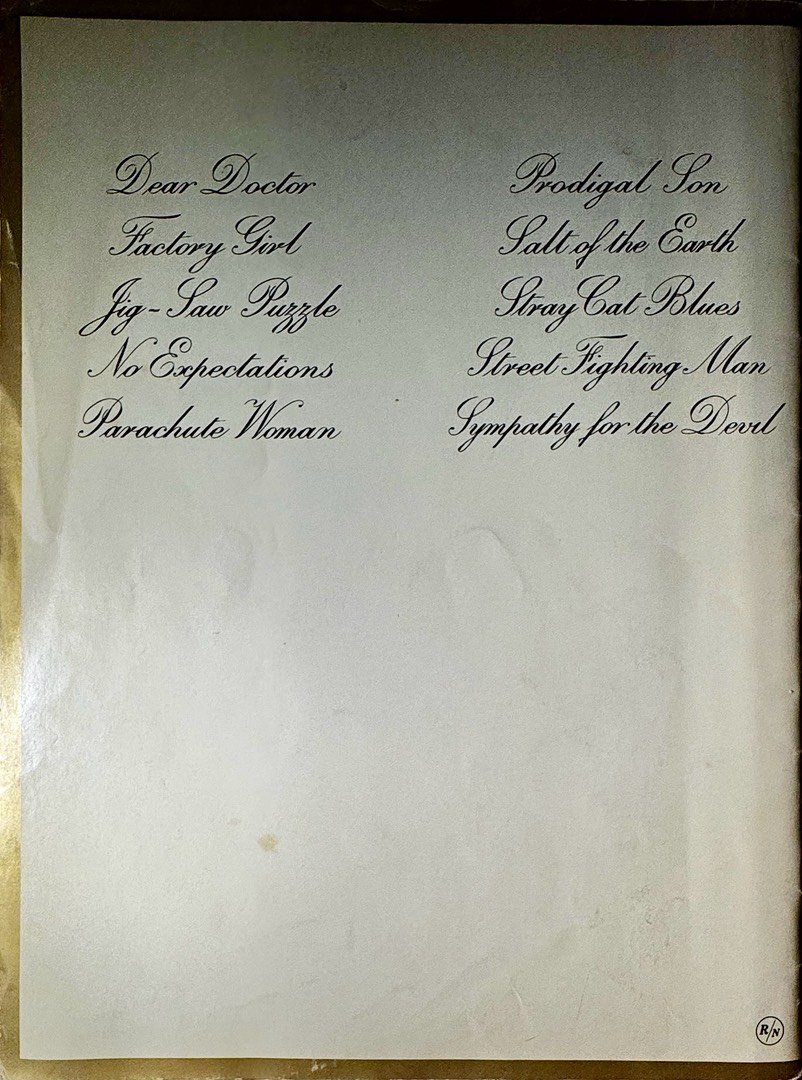 Dear Doctor
Factory Girl
Jig-Saw Puzzle
No Expectations
Parachute Woman
Prodigal Son
Salt of the Earth
Stray Cat Blues
Street Fighting Man
Sympathy for the Devil
R/N